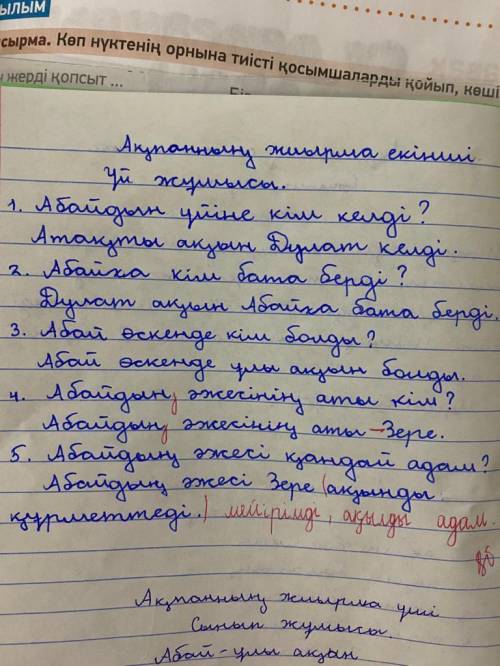 ылым
сырма. Көп нүктенің орнына тиісті қосымшаларды қойып, көші
жерді қопсыт ...
Ақпанның жиырма екінші
Үй жұмысы.
1. Абайдың үйіне кім келді?
Атақты ақын Дулат келді.
2. Абайға кім бата берді?
Дулат ақын Абайға бата берді.
3. Абай өскенде кім болды?
Абай өскенде ұлы ақын болды.
4. Абайдың әжесінің аты кім?
Абайдың әжесінің аты - Зере.
5. Абайдың әжесі қандай адам?
Абайдың әжесі Зере (ақынды
құрметтеді.) мейірімді, ақылды адам.
Ақпанның жиырма үші
Сынып жұмысы.
Абай - ұлы ақын